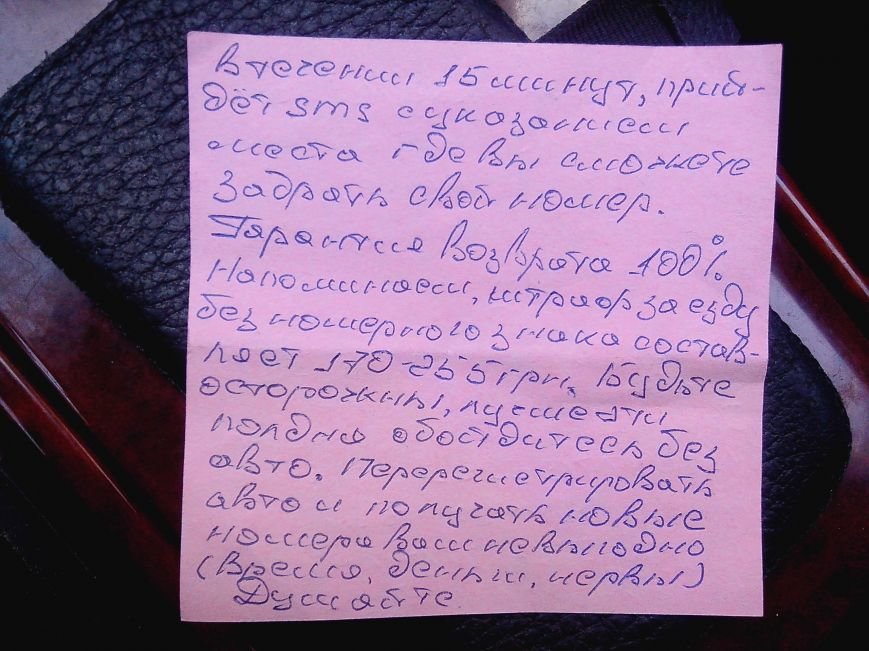 В течении 15 минут, прий-
дёт sms с указанием
места где вы сможете
забрать свой номер.
Гарантия возврата 100%
Напоминаем, штраф за езду
без номерного знака состав-
ляет 170-255 грн. Будьте
осторожны, лучше эти
полдня обойдитесь без
авто. Перерегистрировать
авто и получать новые
номера вам невыгодно
(время, деньги, нервы)
Думайте